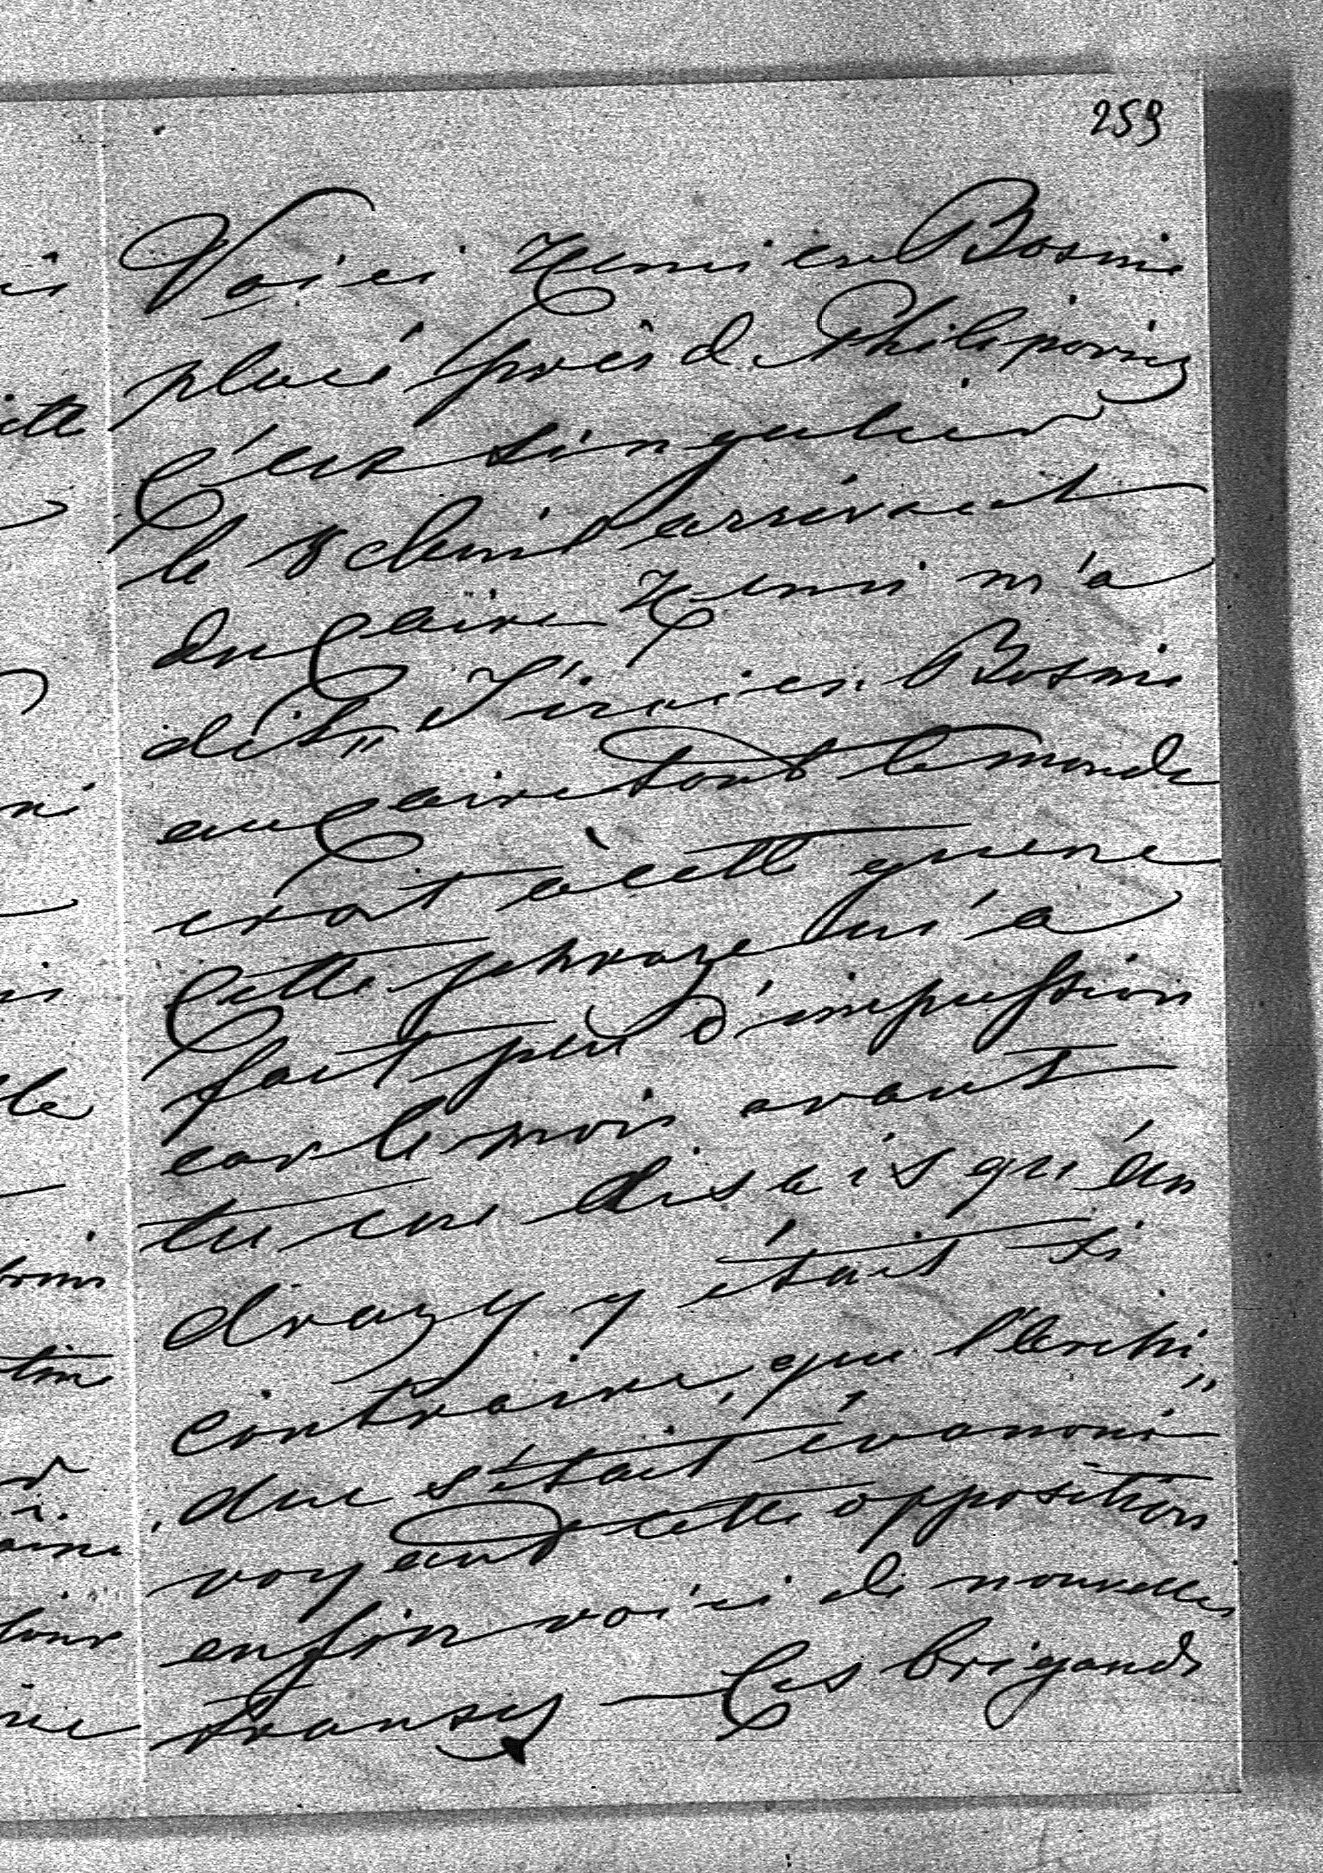 259
Voici Henri en Bosnie
placé près d. Philipoviz
c'est singulier
le 8 clein arrivait
du Caire Henri m'a
dit „J'irai en Bosnie
au Caire tout le monde
croit à cette guerre
Cette phraze m'a
fait peu d'impression
car le mois avant
tu me disais qu'An
drazy y était si
contraire, que l'Archi„
duc s'était évanoui
voyant cette opposition
enfin voici de nouvelles
transes — Ces brigands